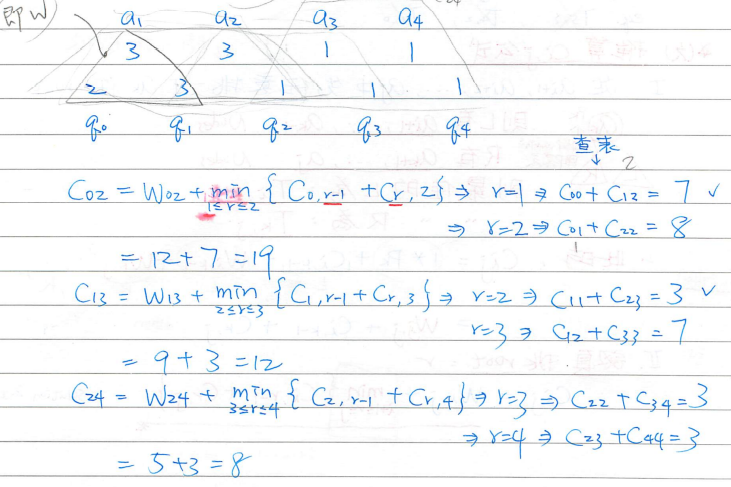 即W
a1 a2 a3 a4
3 3 1 1
2 3 1 1 1
q0 q1 q2 q3 q4
查表
↓ 2
C02 = W02 + min {C0,r-1 + Cr,2} ⇒ r=1 ⇒ C00 + C12 = 7 ✓
1≤r≤2
⇒ r=2 ⇒ C01 + C22 = 8
1
= 12 + 7 = 19
C13 = W13 + min {C1,r-1 + Cr,3} ⇒ r=2 ⇒ C11 + C23 = 3 ✓
2≤r≤3
r=3 ⇒ C12 + C33 = 7
= 9 + 3 = 12
C24 = W24 + min {C2,r-1 + Cr,4} ⇒ r=3 ⇒ C22 + C34 = 3
3≤r≤4
⇒ r=4 ⇒ C23 + C44 = 3
= 5 + 3 = 8